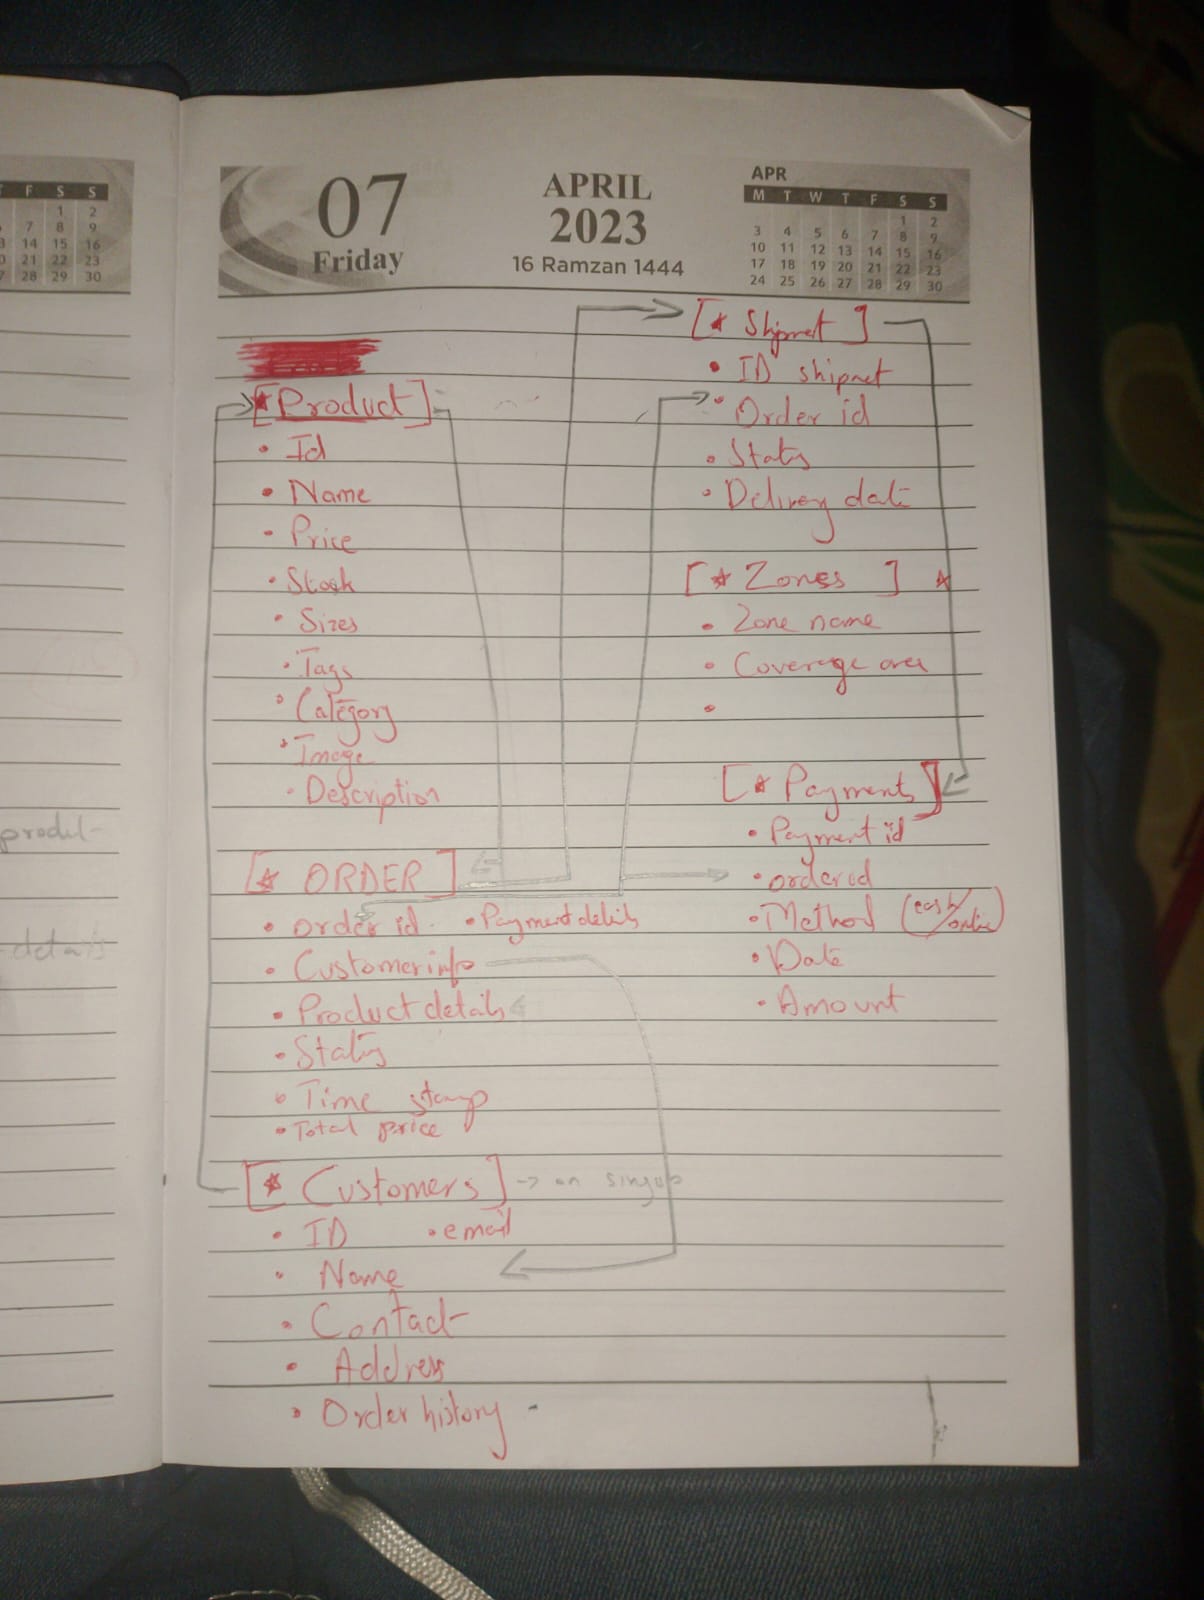 07
Friday
APRIL
2023
16 Ramzan 1444
APR
M T W T F S S
1 2
3 4 5 6 7 8 9
10 11 12 13 14 15 16
17 18 19 20 21 22 23
24 25 26 27 28 29 30
F S S
1 2
7 8 9
14 15 16
21 22 23
28 29 30
[* Product]
• Id
• Name
• Price
• Stock
• Sizes
• Tags
• Category
• Image
• Description
[* ORDER]
• Order id • Payment details
• Customer info
• Product details
• Status
• Time stamp
• Total price
[* Customers] -> on singup
• ID • email
• Name
• Contact
• Address
• Order history -
[* Shipmet]
• ID shipmet
• Order id
• Status
• Delivery date
[* Zones] *
• Zone name
• Coverage area
•
[* Payments]
• Payment id
• order id
• Method (cash/online)
• Date
• Amount
- details